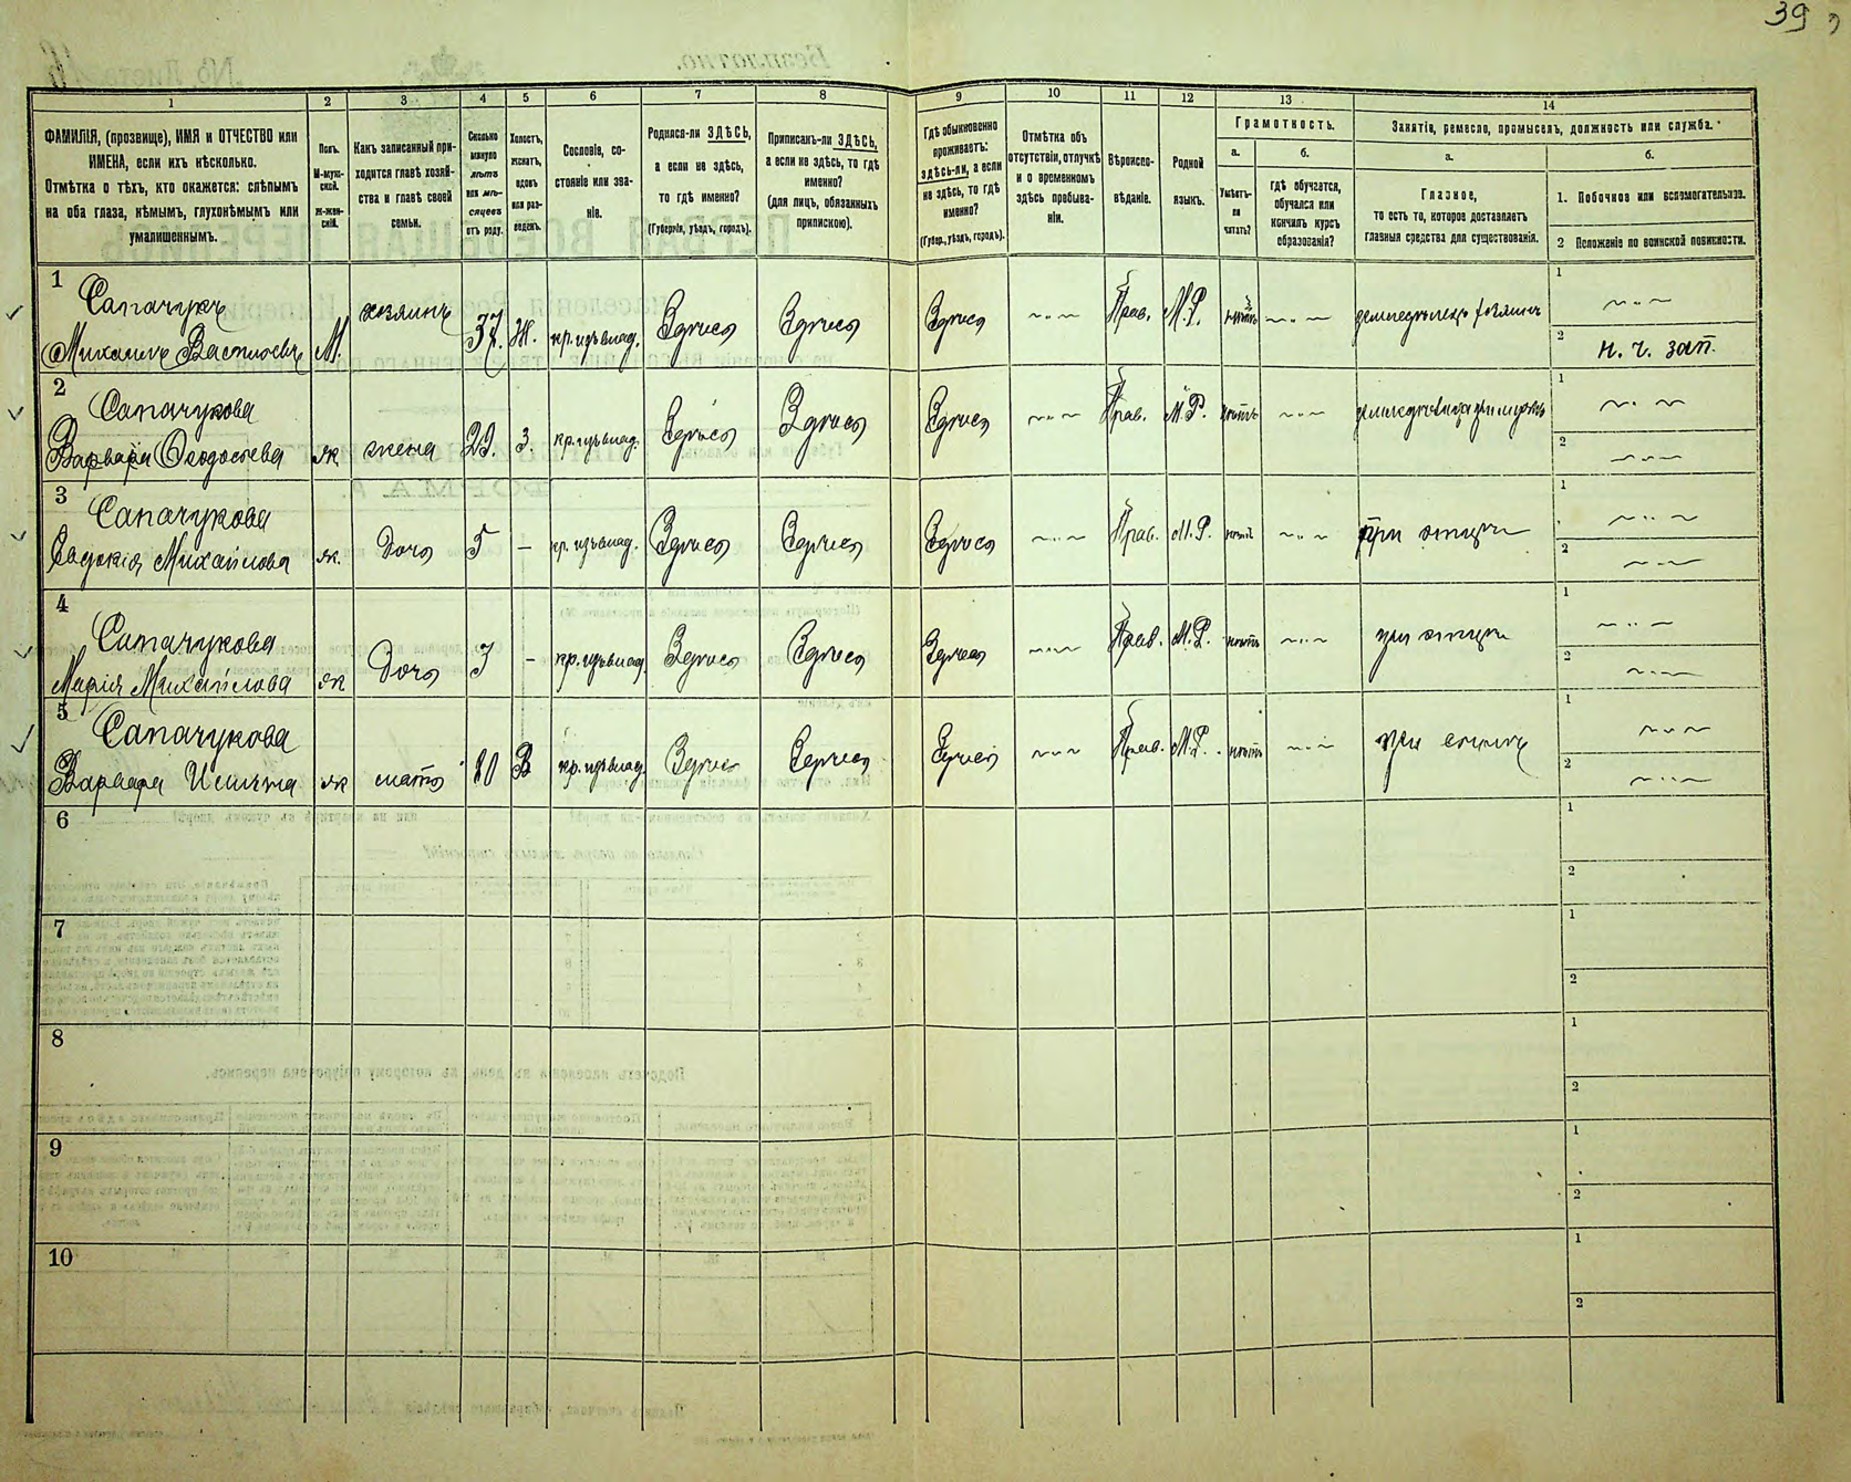 39
1 2 3 4 5 6 7 8 9 10 11 12 13 14
ФАМИЛІЯ, (прозвище), ИМЯ и ОТЧЕСТВО или
ИМЕНА, если ихъ нѣсколько.
Отмѣтка о тѣхъ, кто окажется: слѣпымъ
на оба глаза, нѣмымъ, глухонѣмымъ или
умалишеннымъ.
Полъ.
М-муж-
ской.
Ж-жен-
скій.
Какъ записанный при-
ходится главѣ хозяй-
ства и главѣ своей
семьи.
Сколько
минуло
лѣтъ
или мѣ-
сяцевъ
отъ роду.
Холостъ,
женатъ,
вдовъ
или раз-
веденъ.
Сословіе, со-
стояніе или зва-
ніе.
Родился-ли ЗДѢСЬ,
а если не здѣсь,
то гдѣ именно?
(Губернія, уѣздъ, городъ).
Приписанъ-ли ЗДѢСЬ,
а если не здѣсь, то гдѣ
именно?
(для лицъ, обязанныхъ
припискою).
Гдѣ обыкновенно
проживаетъ:
здѣсь-ли, а если
не здѣсь, то гдѣ
именно?
(Губер., уѣздъ, городъ).
Отмѣтка объ
отсутствіи, отлучкѣ
и о временномъ
здѣсь пребыва-
ніи.
Вѣроиспо-
вѣданіе.
Родной
языкъ.
Грамотность.
а.
Умѣетъ-
ли
читать?
б.
гдѣ обучается,
обучался или
кончилъ курсъ
образованія?
Занятіе, ремесло, промыселъ, должность или служба.
а.
Главное,
то есть то, которое доставляетъ
главныя средства для существованія.
б.
1. Побочное или вспомогательное.
2 Положеніе по воинской повинности.
1
Михаилъ Васильевъ М. хозяинъ 37. Ж. кр. изъ влад. Здѣсь Здѣсь Здѣсь Прав. М.Р. 1
2 н. ч. зап.
2 Сапачукова
Варвара Феодосьева ж жена 29. З. кр. изъ влад. Здѣсь Здѣсь Здѣсь Прав. М.Р. нѣтъ 1
2
3 Сапачукова
Евдокія Михайлова ж. Дочь 5 – кр. изъ влад. Здѣсь Здѣсь Здѣсь Прав. М.Р. нѣтъ при отцѣ 1
2
4 Сапачукова
Марія Михайлова ж Дочь – кр. изъ влад. Здѣсь Здѣсь Здѣсь Прав. М.Р. нѣтъ при отцѣ 1
2
5 Сапачукова
Варвара ж мать В кр. изъ влад. Здѣсь Здѣсь Здѣсь Прав. М.Р. нѣтъ при сынѣ 1
2
6 1
2
7 1
2
8 1
2
9 1
2
10 1
2